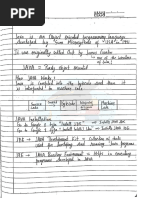 Java is an Object oriented programming language
developed by Sun Microsystems of USA in 1991
It was originally called Oak by James Gosslin
one of the inventors of Java
JAVA = Purely object oriented
How JAVA Works?
Java is compiled into the bytecode and then it
is interpreted to machine code.
Source Code
Compiled
Byte Code
Interpreted
Machine Code
JAVA Installation
Go to Google & type "Install JDK"
Go to Google & type "Install
JDK = JAVA Development Kit = Collection of tools
used for developing and running Java programs
JRE = JAVA Runtime Environment = Helps in executing
programs developed in JAVA